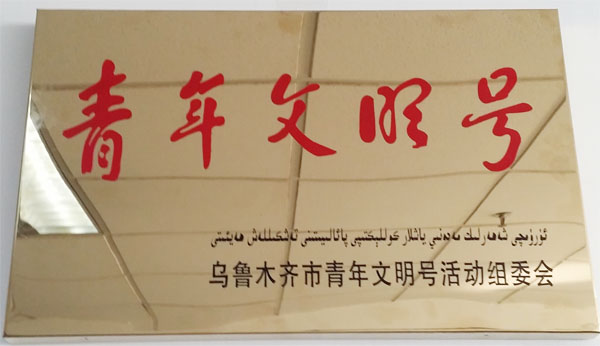 青年文明号
ئۈرۈمچى شەھەرلىك مەدەنىي ياشلار كوللېكتىپى پائالىيىتىنى تەشكىللەش ھەيئىتى
乌鲁木齐市青年文明号活动组委会